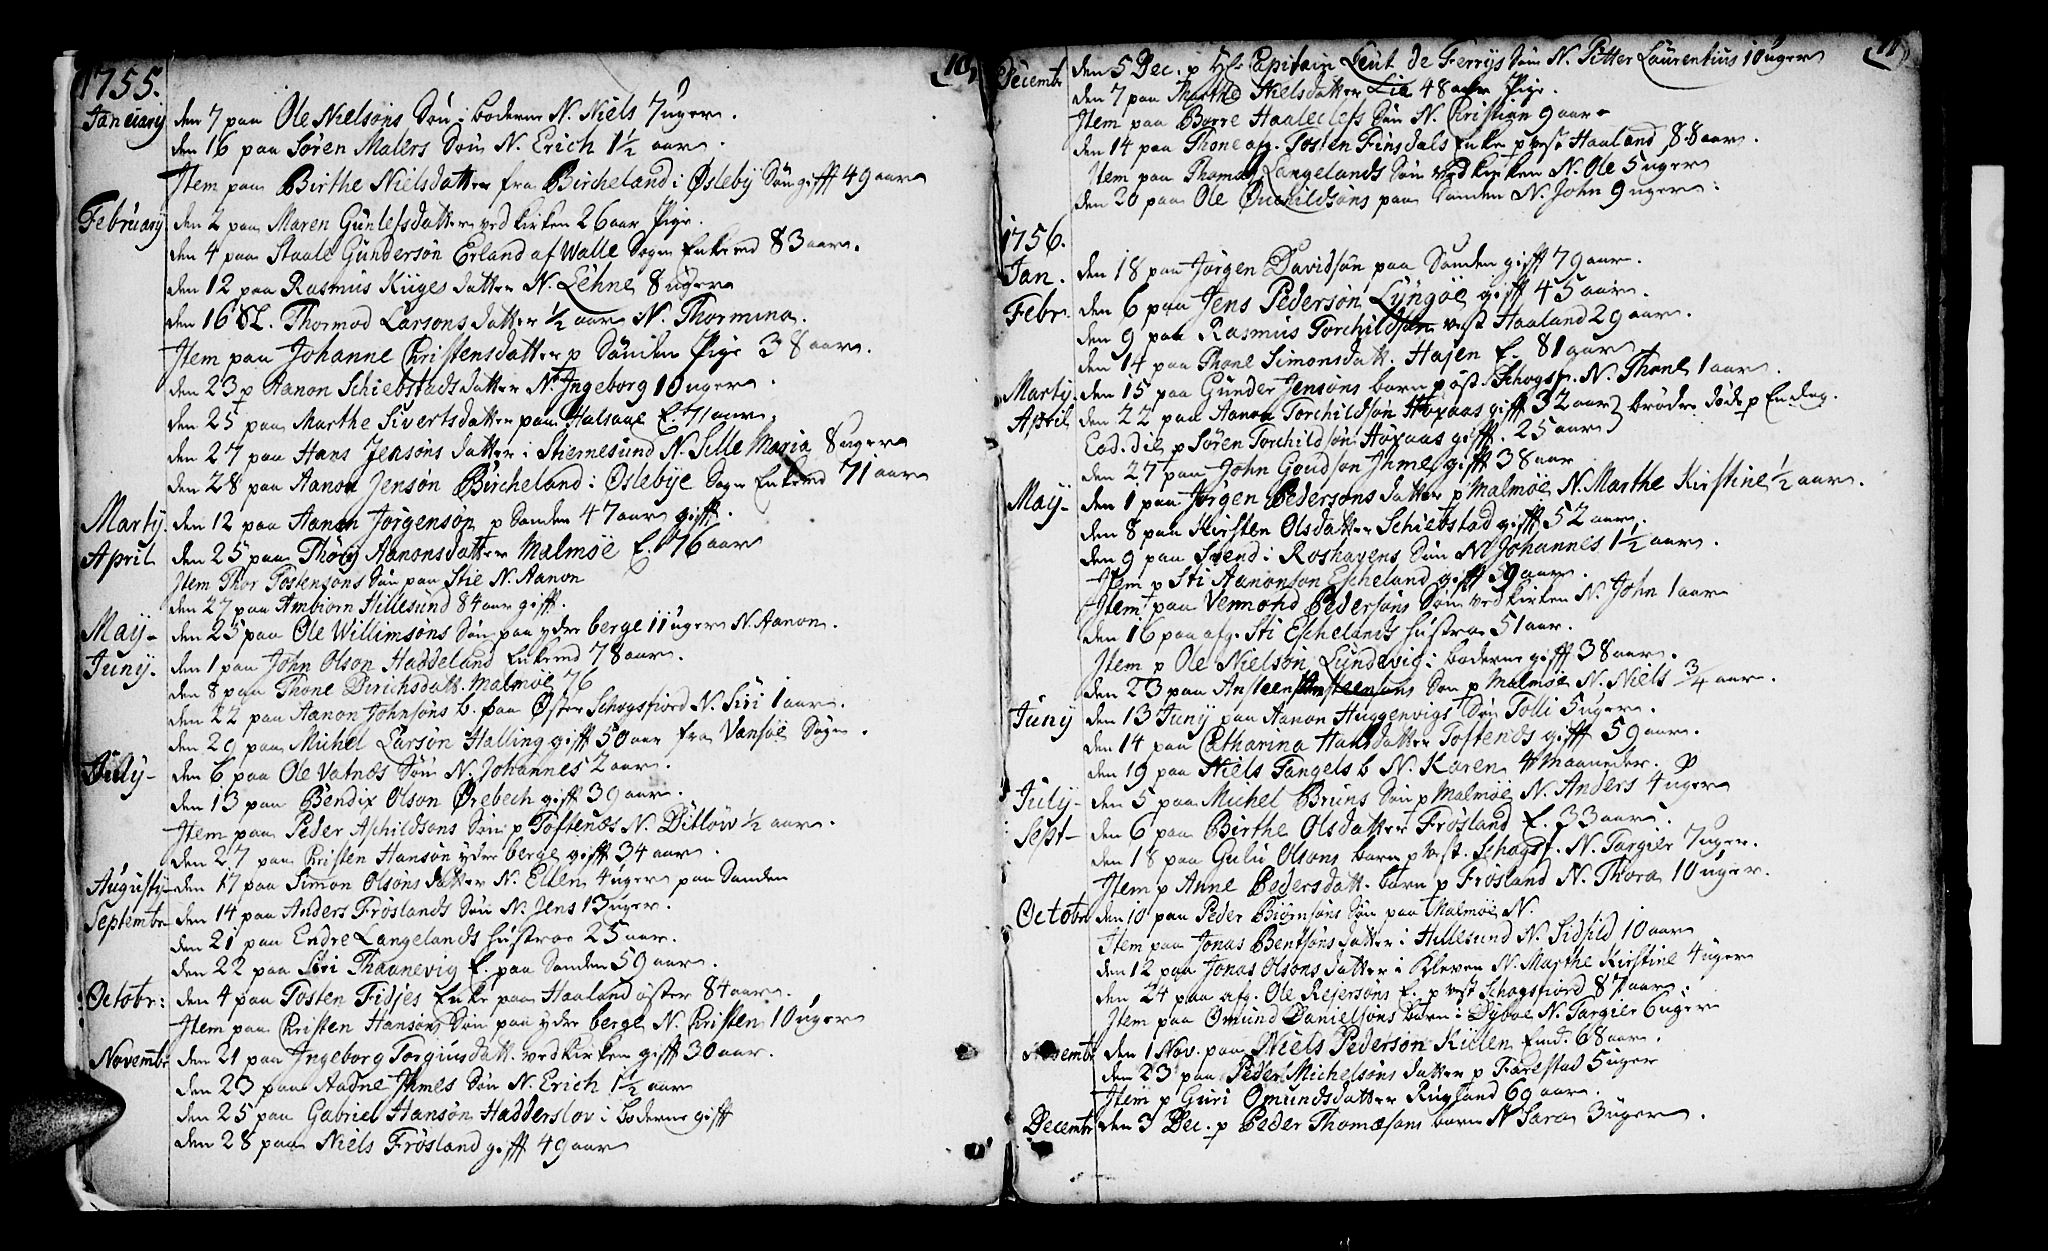 10.
1755.
January den 7 paa Ole Nielsøns Søn i boderne N. Niels 7 uger.
den 16 paa Søren Malers Søn N. Erich 1½ aar.
Item paa Birthe Nielsdatter fra Bircheland i Øslebÿ Sogn gifft 49 aar
February den 2 paa Maren Gunlefsdatter ved kirken 26 aar Pige.
den 4 paa Staale Gundersøn Erland af Walle Sogn Enkemd 83 aar.
den 12 paa Rasmus Kuges datter N. Lehne 8 uger
den 16 Thormod Larsons datter ½ aar N. Thormina.
Item paa Johanne Christensdatter p Sanden Pige 38 aar.
den 23 p Aanon Schiebstads datter N. Ingeborg 10 uger.
den 25 paa Marthe Sivertsdatter paa Halsaae E. 71 aar.
den 27 paa Hans Jensøns datter i Stiernesund N. Sille Maria 8 uger
den 28 paa Aanon Jensøn Bircheland i Øslebÿe Sogn Enkemd 71 aar
Martÿ. den 12 paa Aanon Jørgensøn p Sanden 47 aar gifft.
April den 25 paa Thorÿ Aanonsdatter Malmøe E. 76 aar
Item Thor Tostensøns Søn paa Stie N. Aanon
den 27 paa Ambiorn Hillesund 84 aar gifft.
Maÿ- den 25 paa Ole Willimsøns Søn paa ydre berge 11 uger N. Aanon.
Junÿ- den 1 paa John Olson Haddeland Enkemd 78 aar.
den 8 paa Thone Dirichsdatt. Malmøe 76
den 22 paa Aanon Johnsøns b. paa Øster Schogsfiord N. Siri 1 aar.
den 29 paa Michel Larsøn Halling gifft 50 aar fra Vansøe Sogn.
Julÿ- den 6 paa Ole Vatnes Søn N. Johannes 2 aar.
den 13 paa Bendix Olson Ørebech gifft 39 aar.
Item paa Peder Aschildsøns Søn p Toftenes N. Ditlow ½ aar.
den 27 paa Christen Hansøn ydre berge gifft 34 aar.
Augustÿ- den 17 paa Simon Olsøns datter N. Ellen 4 uger paa Sanden
Septembr den 14 paa Anders Frøslands Søn N. Jens 13 uger.
den 21 paa Endre Langelands Hustroe 25 aar.
den 22 paa Siri Thaanevig E. paa Sanden 59 aar.
Octobr: den 4 paa Tosten Fidjes Enke paa Haaland øster 84 aar.
Item paa Christen Hansøns Søn paa ydre berge N. Christen 10 uger
Novembr den 21 paa Ingeborg Torgiusdatt. ved kirken gifft 30 aar.
den 23 paa Aadne Ihmes Søn N. Erich 1½ aar
den 25 paa Gabriel Hansøn Hadderslov i Boderne gifft
den 28 paa Niels Frøsland gifft 49 aar
11
Decembr den 5 Dec. p Capitain Leut de Ferrÿs Søn N. Pitter Laurentius 10 uger
den 7 paa Marthe Nielsdatter Lie 48 aar Pige.
Item paa Børre Haalelefs Søn N. Christian 9 aar
den 14 paa Thone afg. Tosten Finsdals Enke p vest Haaland 88 aar.
Item paa Thomas Langelands Søn ved kirken N. Ole 5 uger
den 20 paa Ole Ouchildsøns paa Sanden N. John 9 uger:
1756.
Jan. den 18 paa Jørgen Davidsøn paa Sanden gifft 79 aar.
Febr. den 6 paa Jens Pedersøn Lÿngøe gifft 45 aar.
den 9 paa Rasmus Torchildsøn vest Haaland 29 aar.
den 14 paa Thone Simonsdatt. Hasen E. 81 aar
Martÿ. den 15 paa Gunder Jensøns barn p øst. Schogsf. N. Thone 1 aar.
April den 22 paa Aanon Torchildsøn Høyaas gifft 32 aar } brødre døde p En dag.
Eod. die p Søren Torchildsøn Høyaas gifft. 25 aar }
den 27 paa John Goudson Ihme gifft 38 aar
Maÿ- den 1 paa Jørgen Pedersøns datter p Malmøe N. Marthe Kirstine ½ aar.
den 8 paa Kirsten Olsdatter Schiebstad gifft 52 aar.
den 9 paa Svend i Roshavens Søn N. Johannes 1½ aar.
Item p Sti Aanonson Escheland gifft 59 aar.
Item paa Vermond Pedersøns Søn ved kirken N. John 1 aar
den 16 paa afg. Sti Eschelands Hustroe 51 aar.
Item p Ole Nielsøn Lundevig i boderne gifft 38 aar.
den 23 paa Ansteen Ansteensøns Søn p Malmøe N. Niels ¾ aar.
Junÿ den 13 Junÿ paa Aanon Huggenvigs Søn Tolli 5 uger.
den 14 paa Catharina Hansdatter Toftenes gifft 59 aar.
den 19 paa Niels Tangels b N. Karen 4 Maaneder.
Julÿ- den 5 paa Michel Bruns Søn p Malmøe N. Anders 4 uger
Sept- den 6 paa Birthe Olsdatter Frøsland E. 33 aar.
den 18 paa Gulu Olsøns barn p vest. Schogsf. N. Targier 7 uger.
Item p Anne Pedersdatt. barn p Frøsland N. Thora 10 uger.
Octobr den 10 paa Peder Biørnsøns Søn paa Malmøe N.
Item paa Jonas Bentsøns datter i Hillesund N. Sidsild 10 aar
den 12 paa Jonas Olsøns datter i Kleven N. Marthe Kirstine 4 uger
den 24 paa afg. Ole Rejersøns E. p vest Schogsfiord 87 aar.
Item paa Omund Danielsøns barn i Dyboe N. Targier 6 uger
den 1 Nov. paa Niels Pedersøn Killen Emd. 68 aar.
den 23 paa Peder Michelsøns datter p Farestad 5 uger
Item p Guri Omundsdatter Rugland 69 aar.
Decembr den 3 Dec. p Peder Thomæsøns barn N Sara 3 uger.